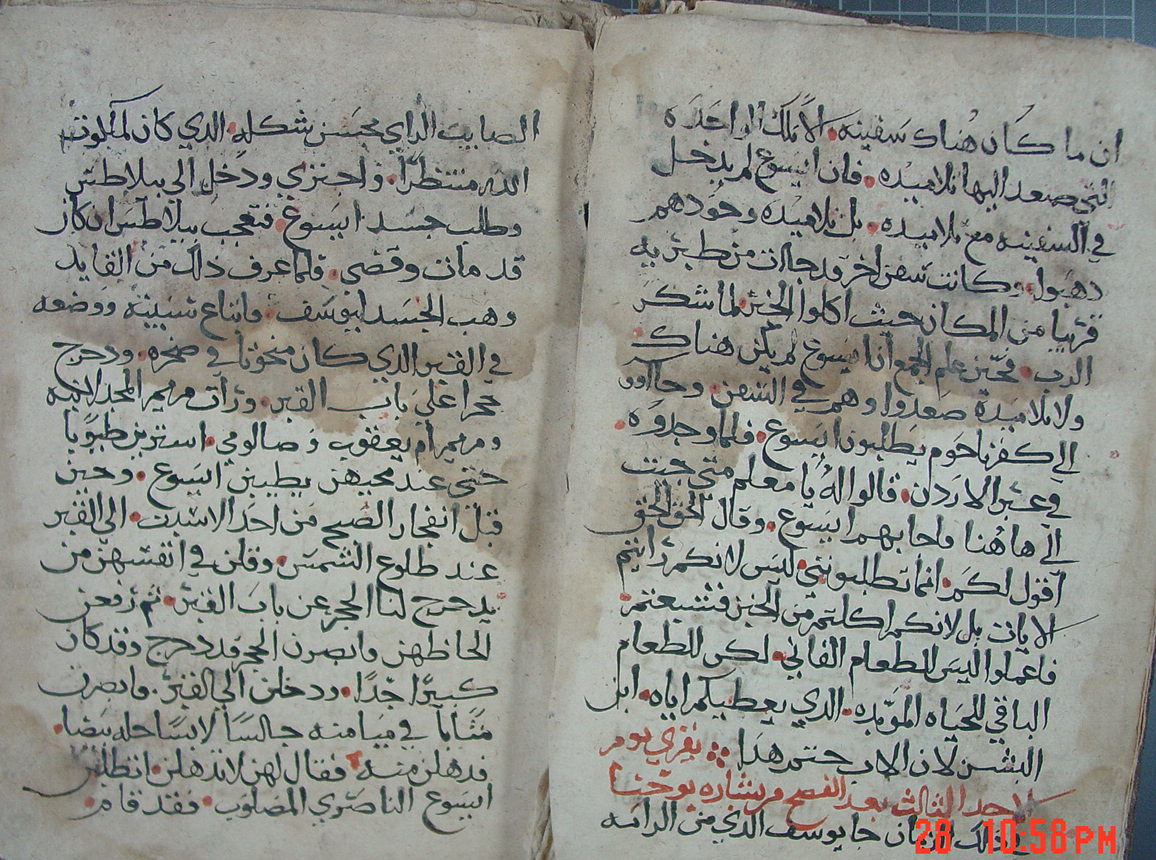 ان ما كان هناك سفينه الا تلك الواحده
التي صعد اليها تلاميده فان ايسوع لم يدخل
في السفينه مع تلاميده بل تلاميده وحودهم
دهبوا وكانت سفن اخر قد جاات من طبريه
قريبا من المكان حيث اكلوا الخبز لما شكر
الرب فحين علم الجمع ان ايسوع لم يكن هناك
ولا تلاميده صعدوا وهم في السفن وجااوو
الي كفرناحوم يطلبون ايسوع فلما وجدوه
في عبر الاردن قالوا له يا معلم متي جيت
الي هاهنا واجابهم ايسوع وقال الحق الحق
اقول لكم انما تطلبونني ليس لانكم رايتم
الايات بل لانكم اكلتم من الخبز فشبعتم
فاعملوا ليس للطعام الفاني لكن للطعام
الباقي للحياه الموبده الدي يعطيكم اياه ابن
البشر لان الاب ختم هدا يقري يوم
الاحد الثالث بعد الفصح من بشاره يوحنا
في دلك الزمان جا يوسف الدي من الرامه
الصايب الراي محسن شكله الدي كان لملكوت
الله منتظرا واجتزي ودخل الي بيلاطس
وطلب جسد ايسوع فتعجب بيلاطس ان كان
قد مات وقضي فلما عرف ذلك من القايد
وهب الجسد ليوسف فابتاع سبنيه ووضعه
في القبر الدي كان منحوتا في صخره ودحرج
حجرا علي باب القبر ورات مريم المجدلانيه
ومريم ام يعقوب وصالومي استرين طيوبا
حتي عند مجيهن يطيبن ايسوع وحين
قبل انفجار الصبح من احد الاسبت الي القبر
عند طلوع الشمس وقلن في انفسهن من
يدحرج لنا الحجر عن باب القبر ثم رفعن
الحاظهن وابصرن الحجر قد دحرج وقد كان
كبيرا جدا ودخلن الي القبر وابصرن
شابا في ميامنه جالسا لابسا حله بيضا
فدهلن منه فقال لهن لا تدهلن اتطلبن
ايسوع الناصري المصلوب فقد قام
28 10:58 PM